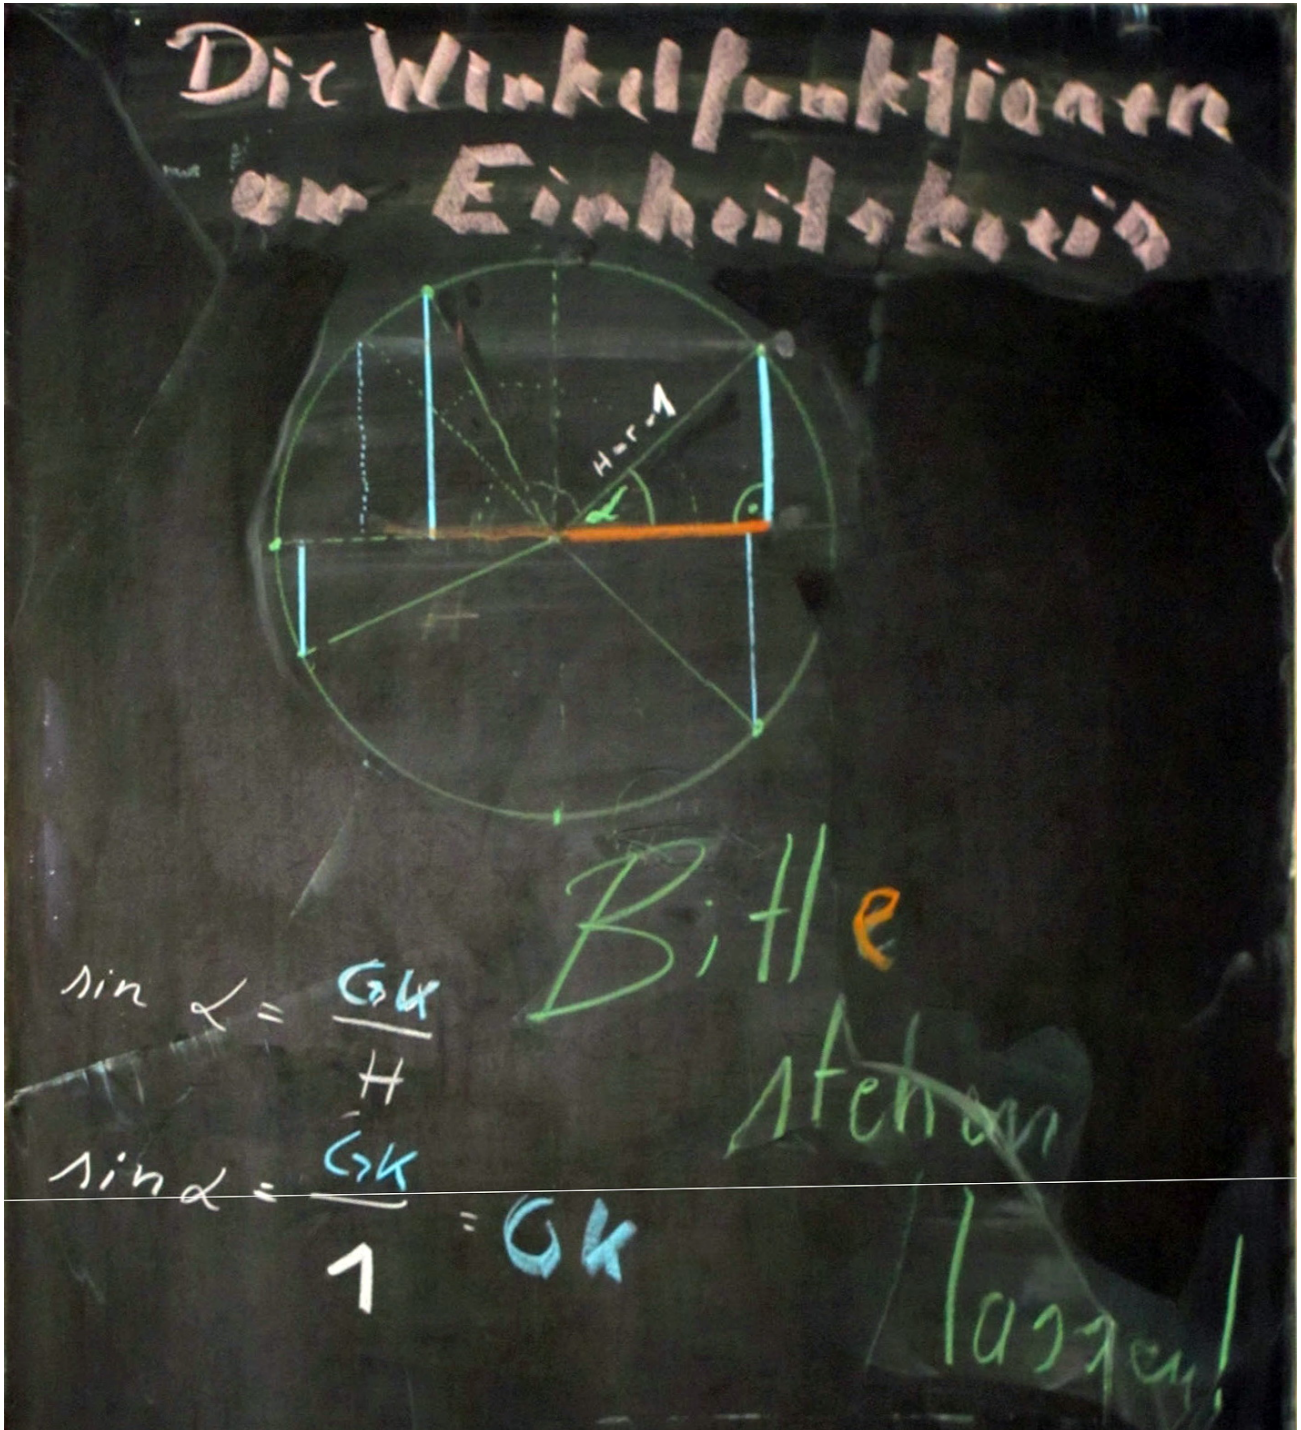 Die Winkelfunktionen
am Einheitskreis
H=r=1
α
sin α = GK
H
sin α = GK
1
= GK
Bitte
stehen
lassen!